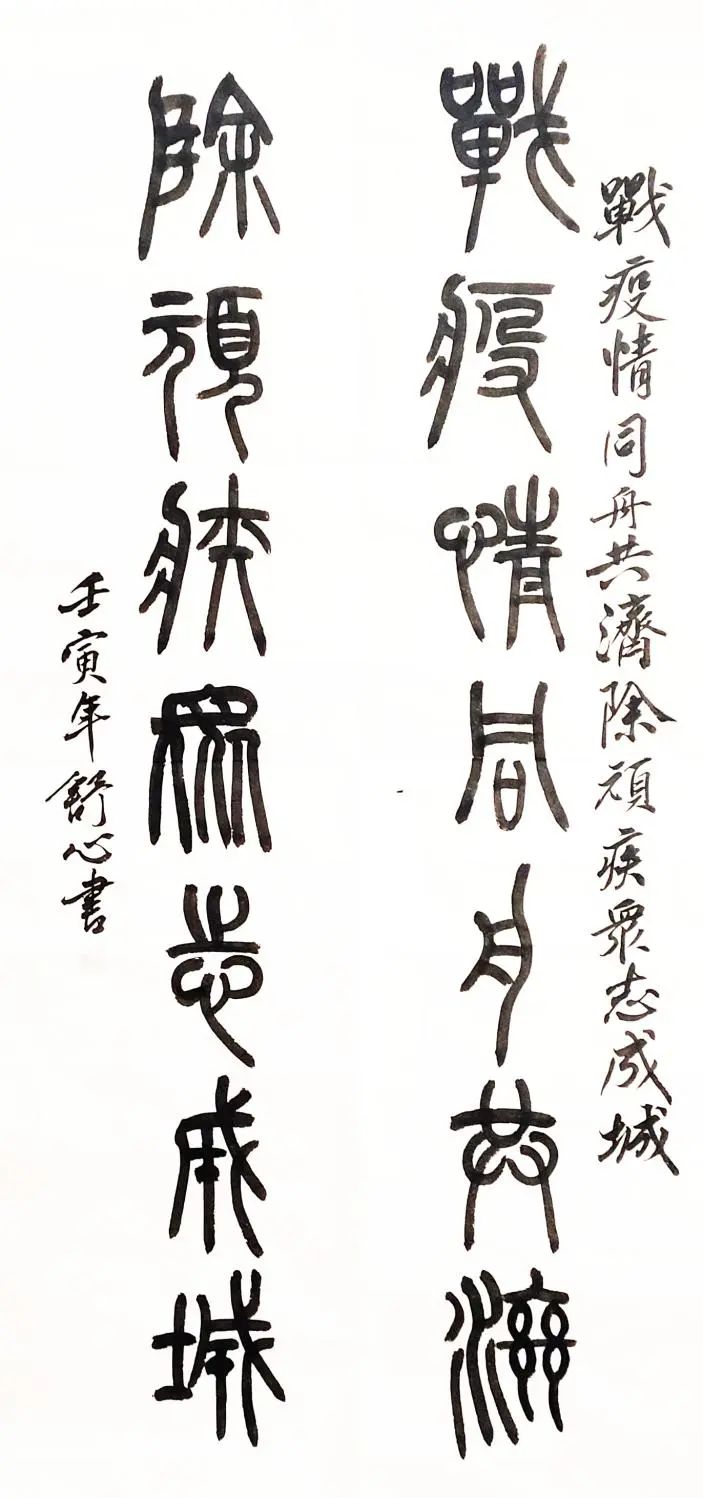 戰疫情同舟共濟除頑疾眾志成城
戰疫情同舟共濟
除頑疾眾志成城
壬寅年舒心書